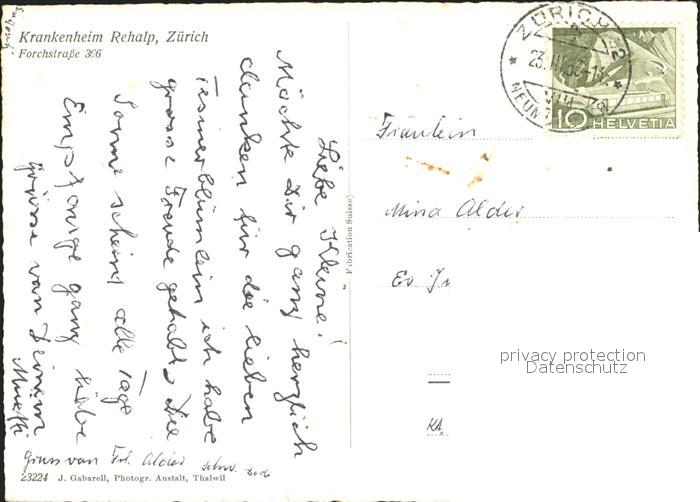 Krankenheim Rehalp, Zürich
Forchstraße 366
Liebe Kleine!
Möchte Dir ganz herzlich
danken für die lieben
Tessinerblümlein ich habe
grosse Freude gehabt. Die
Sonne scheint alle Tage
Empfange ganz liebe
Grüsse von Deinem
Gruss von Frl. Alder
23224 J. Gabarell, Photogr. Anstalt, Thalwil
Fabrication Suisse
ZÜRICH 32
NEUM
10 HELVETIA
Fräulein
Mina Alder
privacy protection
Datenschutz